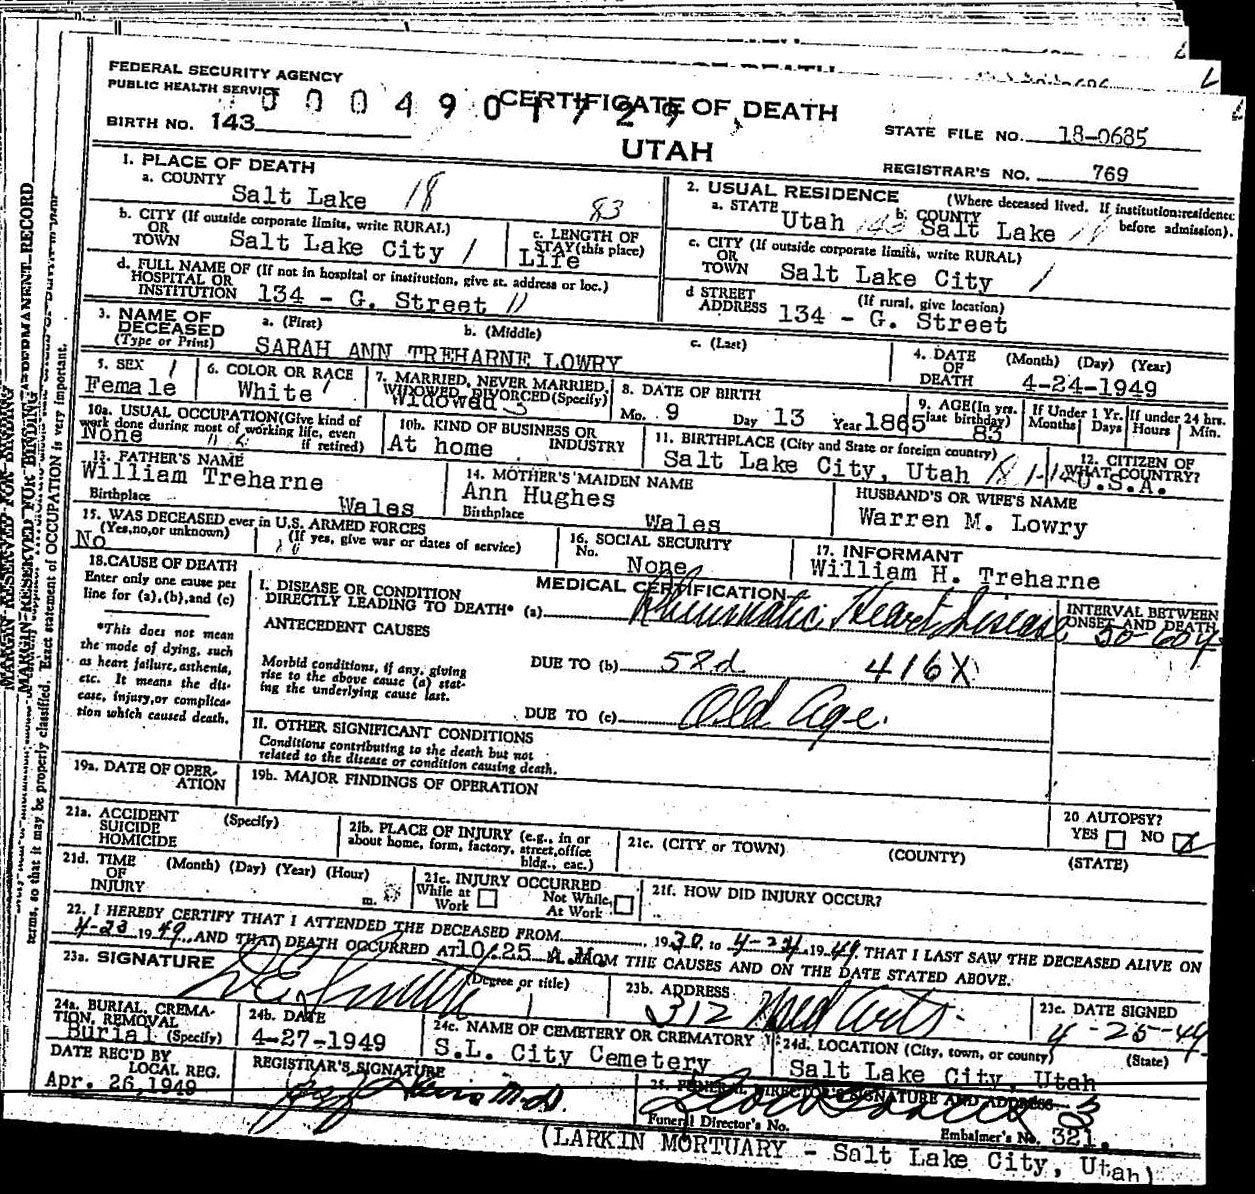 FEDERAL SECURITY AGENCY
PUBLIC HEALTH SERVICE
0 0 0 4 9 0 1 7 2 9
CERTIFICATE OF DEATH
BIRTH NO. 143
UTAH
STATE FILE NO. 18-0685
REGISTRAR'S NO. 769
1. PLACE OF DEATH
a. COUNTY
Salt Lake 18 83
2. USUAL RESIDENCE (Where deceased lived. If institution:residence before admission).
a. STATE Utah 143 b. COUNTY Salt Lake
b. CITY (If outside corporate limits, write RURAL)
OR
TOWN Salt Lake City 1
c. LENGTH OF
STAY (this place)
Life
c. CITY (If outside corporate limits, write RURAL)
OR
TOWN Salt Lake City 1
d. FULL NAME OF (If not in hospital or institution, give st. address or loc.)
HOSPITAL OR
INSTITUTION 134 - G. Street
d STREET (If rural, give location)
ADDRESS 134 - G. Street
3. NAME OF
DECEASED
(Type or Print)
a. (First) b. (Middle) c. (Last)
SARAH ANN TREHARNE LOWRY
4. DATE (Month) (Day) (Year)
OF
DEATH 4-24-1949
5. SEX 1
Female
6. COLOR OR RACE
White 1
7. MARRIED, NEVER MARRIED,
WIDOWED, DIVORCED (Specify)
Widowed 3
8. DATE OF BIRTH
Mo. 9 Day 13 Year 1865
9. AGE (In yrs.
last birthday)
83
If Under 1 Yr.
Months Days
If under 24 hrs.
Hours Min.
10a. USUAL OCCUPATION (Give kind of
work done during most of working life, even
if retired)
None
10b. KIND OF BUSINESS OR
INDUSTRY
At home
11. BIRTHPLACE (City and State or foreign country)
Salt Lake City, Utah
12. CITIZEN OF
WHAT COUNTRY?
U.S.A.
13. FATHER'S NAME
William Treharne
Birthplace Wales
14. MOTHER'S MAIDEN NAME
Ann Hughes
Birthplace Wales
HUSBAND'S OR WIFE'S NAME
Warren M. Lowry
15. WAS DECEASED ever in U.S. ARMED FORCES
(Yes,no,or unknown) (If yes, give war or dates of service)
No
16. SOCIAL SECURITY
No. None
17. INFORMANT
William H. Treharne
18. CAUSE OF DEATH
Enter only one cause per
line for (a),(b),and (c)
*This does not mean
the mode of dying, such
as heart failure, asthenia,
etc. It means the dis-
ease, injury,or complica-
tion which caused death.
MEDICAL CERTIFICATION
I. DISEASE OR CONDITION
DIRECTLY LEADING TO DEATH* (a) Rheumatic Heart Disease
INTERVAL BETWEEN
ONSET AND DEATH
50-60 y
ANTECEDENT CAUSES
Morbid conditions, if any, giving
rise to the above cause (a) stat-
ing the underlying cause last.
DUE TO (b) 58d 416X
DUE TO (c) Old Age.
II. OTHER SIGNIFICANT CONDITIONS
Conditions contributing to the death but not
related to the disease or condition causing death.
19a. DATE OF OPER-
ATION
19b. MAJOR FINDINGS OF OPERATION
20 AUTOPSY?
YES NO X
21a. ACCIDENT (Specify)
SUICIDE
HOMICIDE
21b. PLACE OF INJURY (e.g., in or
about home, form, factory, street,office
bldg., eac.)
21c. (CITY or TOWN) (COUNTY) (STATE)
21d. TIME (Month) (Day) (Year) (Hour)
OF
INJURY m.
21e. INJURY OCCURRED
While at Work Not While, At Work
21f. HOW DID INJURY OCCUR?
22. I HEREBY CERTIFY THAT I ATTENDED THE DECEASED FROM 1930, to 4-24, 1949, THAT I LAST SAW THE DECEASED ALIVE ON
4-23 1949, AND THAT DEATH OCCURRED AT 10:25 A.M. FROM THE CAUSES AND ON THE DATE STATED ABOVE.
23a. SIGNATURE (Degree or title)
23b. ADDRESS
312 Med Arts
23c. DATE SIGNED
4-25-49
24a. BURIAL, CREMA-
TION, REMOVAL
Burial (Specify)
24b. DATE
4-27-1949
24c. NAME OF CEMETERY OR CREMATORY
S.L. City Cemetery
24d. LOCATION (City, town, or county) (State)
Salt Lake City, Utah
DATE REC'D BY
LOCAL REG.
Apr. 26, 1949
REGISTRAR'S SIGNATURE
25. FUNERAL DIRECTOR'S SIGNATURE AND ADDRESS
Funeral Director's No. Embalmer's No. 321.
(LARKIN MORTUARY - Salt Lake City, Utah)
MARGIN RESERVED FOR BINDING
terms, so that it may be properly classified. Exact statement of OCCUPATION is very important.